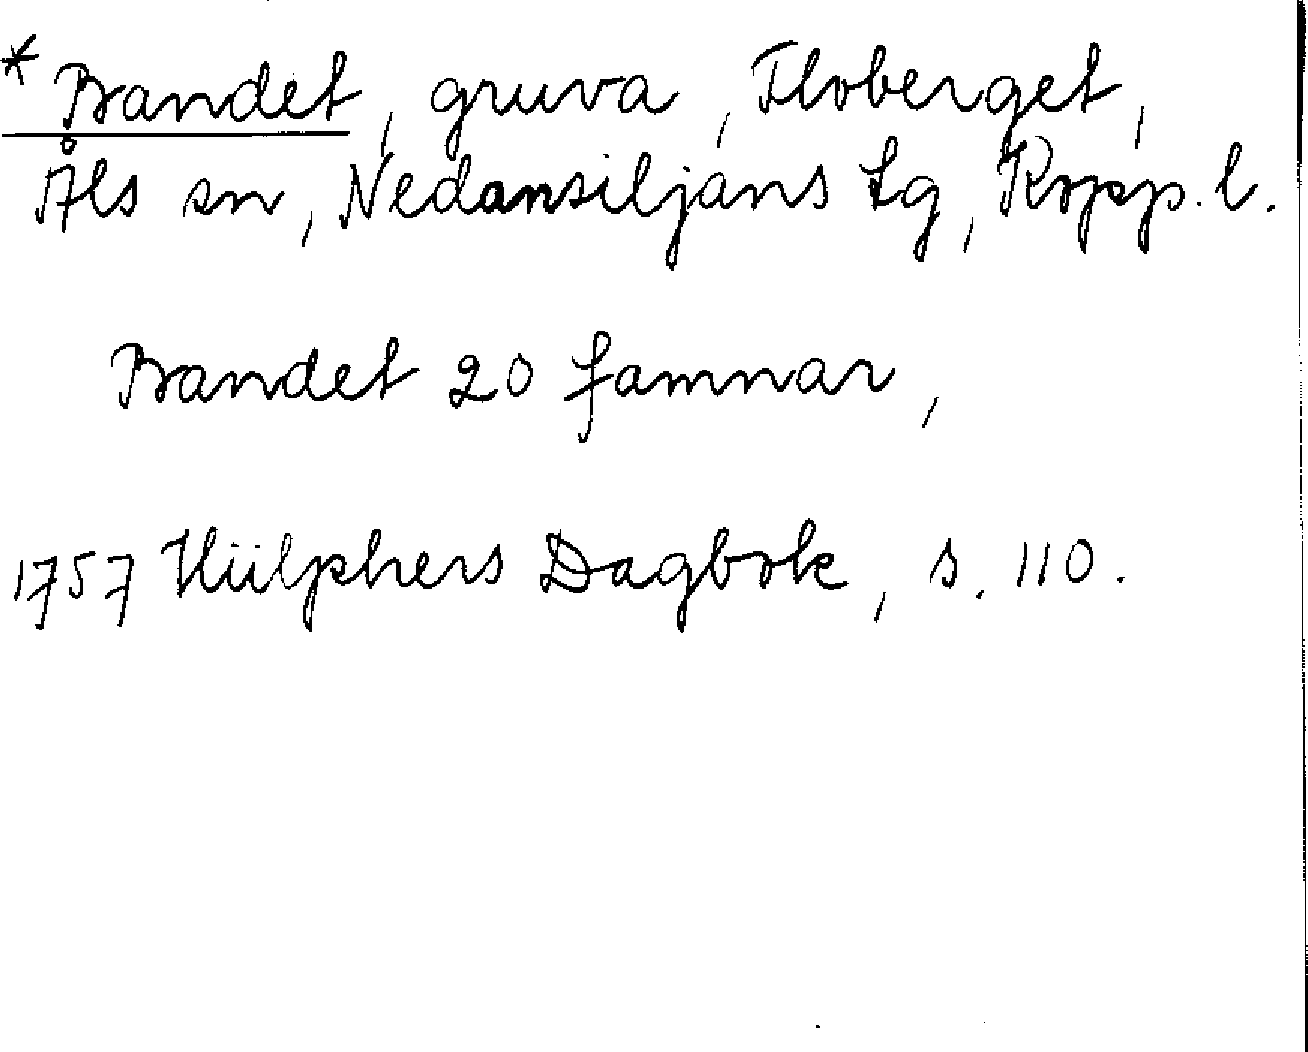 *Bandet, gruva, Floberget,
Åls sn, Nedansiljans tg, Kopp. l.
Bandet 20 famnar,
1757 Hülphers Dagbok, s. 110.